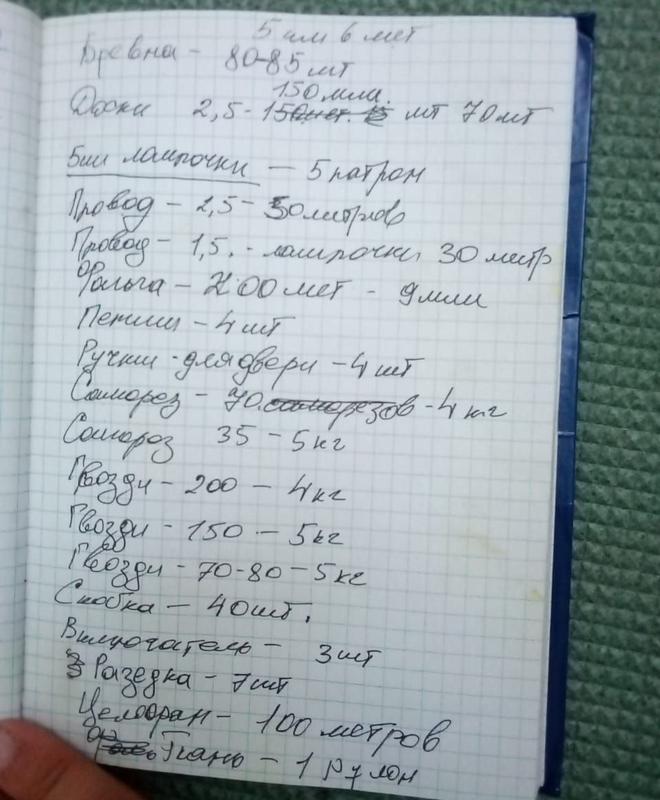 5 или 6 мет
Бревна - 80-85 мт
150 мли.
Доски 2,5 - мт 70 мт
5 ш лампочки - 5 патрон
Провод - 2,5 - 50 литров
Провод - 1,5. - лампочки 30 метр
Фольга - 200 мет - 9 мли
Петли - 4 шт
Ручки - для двери - 4 шт
Саморез - 70 саморезов - 4 кг
Саморез 35 - 5 кг
Гвозди - 200 - 4 кг
Гвозди - 150 - 5 кг
Гвозди - 70-80 - 5 кг
Скобка - 40 шт.
Включатель - 3 шт
Разедка - 7 шт
Целофан - 100 метров
Ткань - 1 рулон